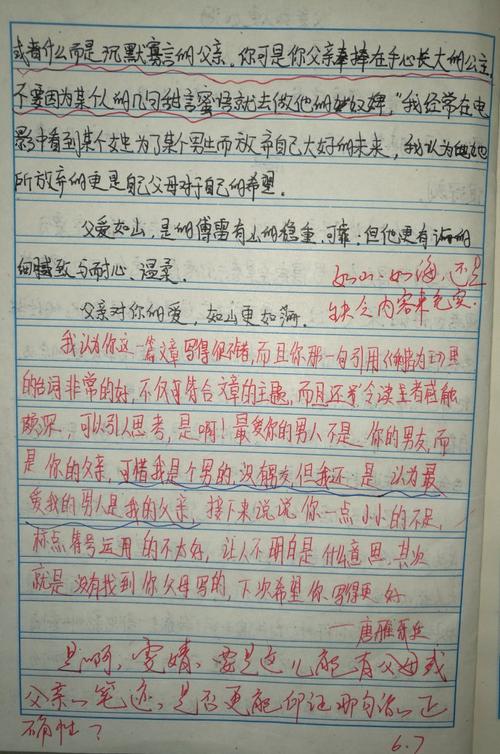 或者什么而是沉默寡言的父亲。你可是你父亲奉捧在手心长大的公主
不要因为某个人的几句甜言蜜语就去做他的奴婢。"我经常在电
影中看到某个女生为了某个男生而放弃自己大好的未来，我认为她
所放弃的更是自己父母对于自己的希望。
父爱如山，是的傅雷有山的稳重、可靠；但他更有海的
细腻致与耐心、温柔。
如山、如海，不是
父亲对你的爱，如山更如海。
缺令内容来充实
我认为你这一篇文章写得很不错，而且你那一句引用《何以为》里
的台词非常的好，不仅符合文章的主题，而且还令读者感触
颇深，可以引人思考，是啊！最爱你的男人不是你的男友，而
是你的父亲，可惜我是个男的，没有男友，但我还是认为最
爱我的男人是我的父亲，接下来说说你一点小小的不足，
标点符号运用的不太好，让人不明白是什么意思，其次
就是没有找到你父母写的，下次希望你写得更好
——唐雁
是啊，雯婧，要是这儿能有父母或
父亲的笔迹，是否更能印证那句话的正
确性？
6.7